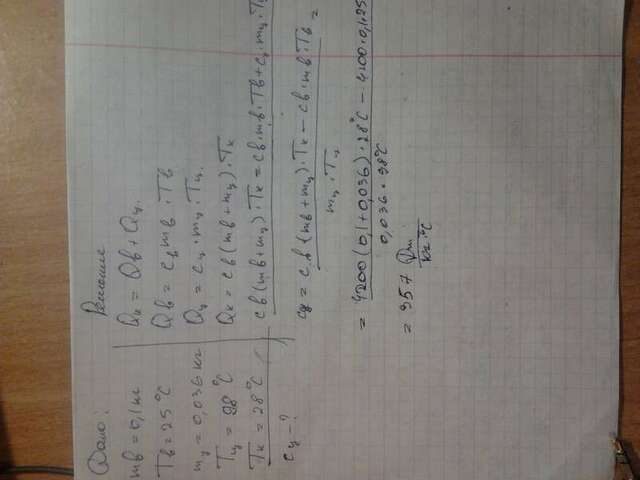 Дано:
mв = 0,1 кг
Tв = 25°C
mц = 0,036 кг
Tц = 98°C
Tк = 28°C
cц - ?
Решение
Qк = Qв + Qц.
Qв = cв mв · Tв
Qц = cц · mц · Tц.
Qк = cв (mв + mц) · Tк
cв (mв + mц) · Tк = cв · mв · Tв + cц · mц ·
cц = cв · (mв + mц) · Tк - cв · mв · Tв =
mц · Tц
= 4200 (0,1 + 0,036) · 28°C - 4200 · 0,1 · 25
0,036 · 98°C
= 957 Дж
кг · °C